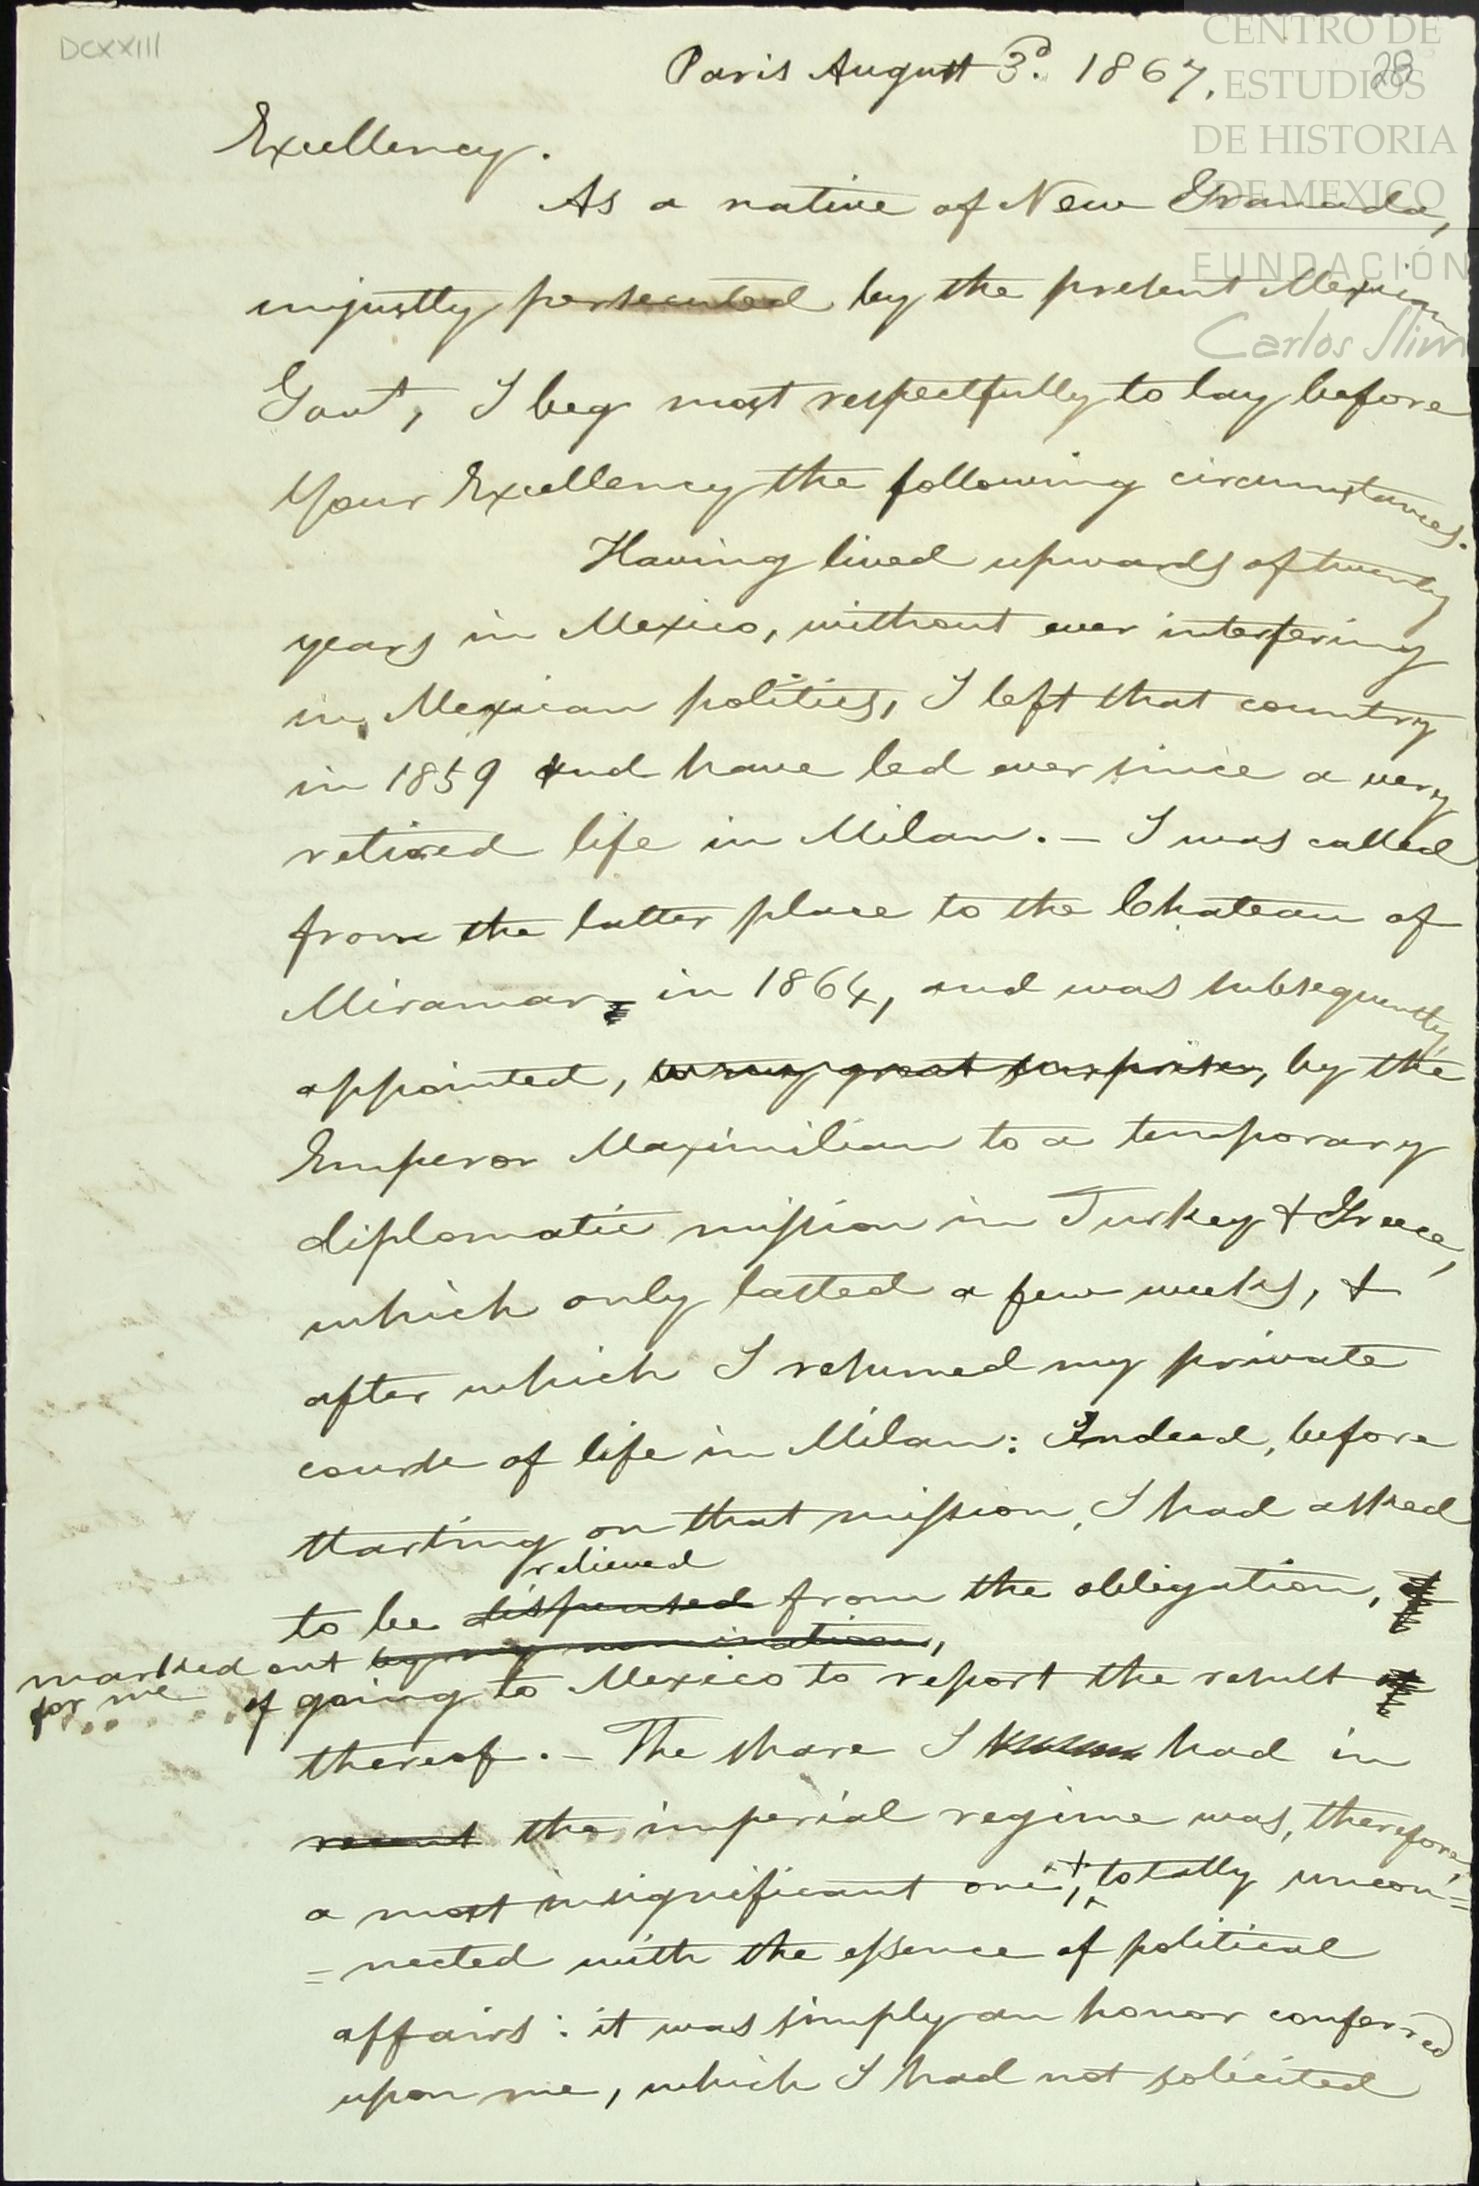 DCXXIII
28
CENTRO DE
ESTUDIOS
DE HISTORIA
DE MEXICO
FUNDACIÓN
Carlos Slim
Paris August 3d. 1867.
Excellency.
As a native of New Granada,
unjustly persecuted by the present Mexican
Govt, I beg most respectfully to lay before
Your Excellency the following circumstances.
Having lived upwards of twenty
years in Mexico, without ever interfering
in Mexican politics, I left that country
in 1859 and have led ever since a very
retired life in Milan. – I was called
from the latter place to the Chateau of
Miramar, in 1864, and was subsequently
appointed, to my great surprise, by the
Emperor Maximilian to a temporary
diplomatic mission in Turkey & Greece,
which only lasted a few weeks, &
after which I resumed my private
course of life in Milan: Indeed, before
starting on that mission, I had asked
relieved
to be dispensed from the obligation,
marked out by my nomination,
for me of going to Mexico to report the result
thereof. – The share I had in
recent the imperial regime was, therefore,
a most insignificant one, & totally uncon=
=nected with the essence of political
affairs: it was simply an honor conferred
upon me, which I had not solicited